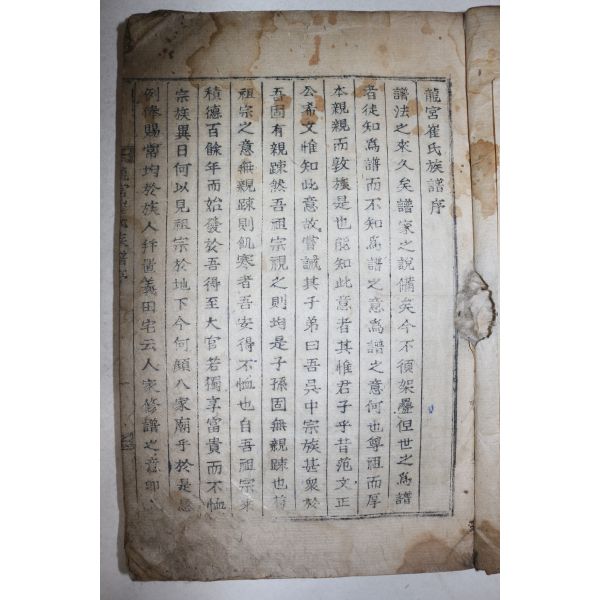 龍宮崔氏族譜序
譜法之來久矣譜家之說備矣今不須架疊但世之爲譜
者徒知爲譜而不知爲譜之意爲譜之意何也尊祖而厚
本親親而敦族是也能知此意者其惟君子乎昔范文正
公希文惟知此意故嘗誡其子弟曰吾吳中宗族甚衆於
吾固有親踈然吾祖宗視之則均是子孫固無親踈也苟
祖宗之意無親踈則飢寒者吾安得不恤也自吾祖宗來
積德百餘年而始發於吾得至大官若獨享富貴而不恤
宗族異日何以見祖宗於地下今何顔入家廟乎於是恩
例俸賜常均於族人幷置義田宅云人家修譜之意卽
龍宮崔氏族譜序